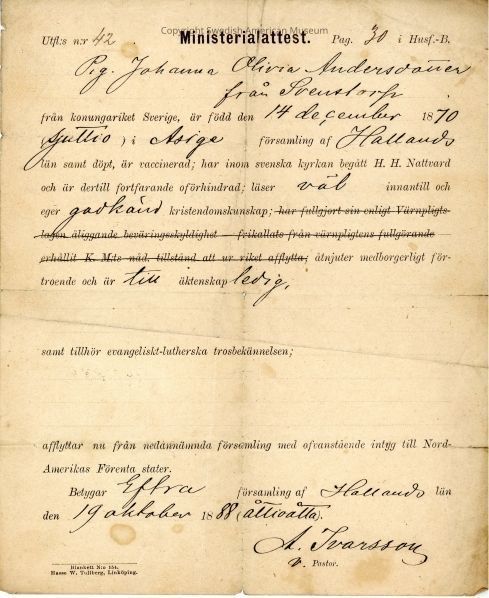 Copyright Swedish American Museum
Utfl:s n:r 42 Ministerialattest. Pag. 30 i Husf.-B.
Pig. Johanna Olivia Andersdotter
från Svenstorp
från konungariket Sverige, är född den 14 december 1870
(sjuttio) i Asige församling af Hallands
län samt döpt, är vaccinerad; har inom svenska kyrkan begått H. H. Nattvard
och är dertill fortfarande oförhindrad; läser väl innantill och
eger godkänd kristendomskunskap; har fullgjort sin enligt Värnpligts-
lagen åliggande beväringsskyldighet — frikallats från värnpligtens fullgörande
erhållit K. M:ts nåd. tillstånd att ur riket afflytta; åtnjuter medborgerligt för-
troende och är till äktenskap ledig,
samt tillhör evangeliskt-lutherska trosbekännelsen;
afflyttar nu från nedannämnda församling med ofvanstående intyg till Nord-
Amerikas Förenta stater.
Betygar Eftra församling af Hallands län
den 19 oktober 1888 (åttioåtta).
A. Ivarsson
v. Pastor.
Blankett N:o 154.
Hasse W. Tullberg, Linköping.